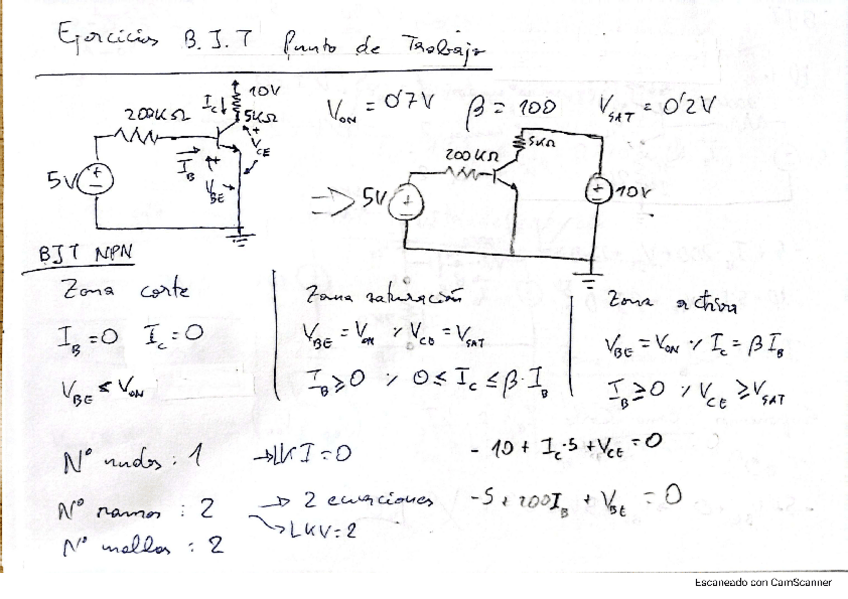 Ejercicios B.J.T Punto de Trabajo
10V
I_C ↓
200KΩ
5KΩ
+ V_CE -
I_B
+ V_BE -
5V
V_ON = 0'7V β = 100 V_SAT = 0'2V
5KΩ
200KΩ
5V
10V
⇒
BJT NPN
Zona corte
I_B = 0 I_C = 0
V_BE ≤ V_ON
Zona saturación
V_BE = V_ON ; V_CE = V_SAT
I_B ≥ 0 ; 0 ≤ I_C ≤ β · I_B
Zona activa
V_BE = V_ON ; I_C = β I_B
I_B ≥ 0 ; V_CE ≥ V_SAT
Nº nudos : 1 → LKI = 0
Nº ramas : 2 → 2 ecuaciones
→ LKV = 2
Nº mallas : 2
- 10 + I_C · 5 + V_CE = 0
- 5 + 200 I_B + V_BE = 0
Escaneado con CamScanner